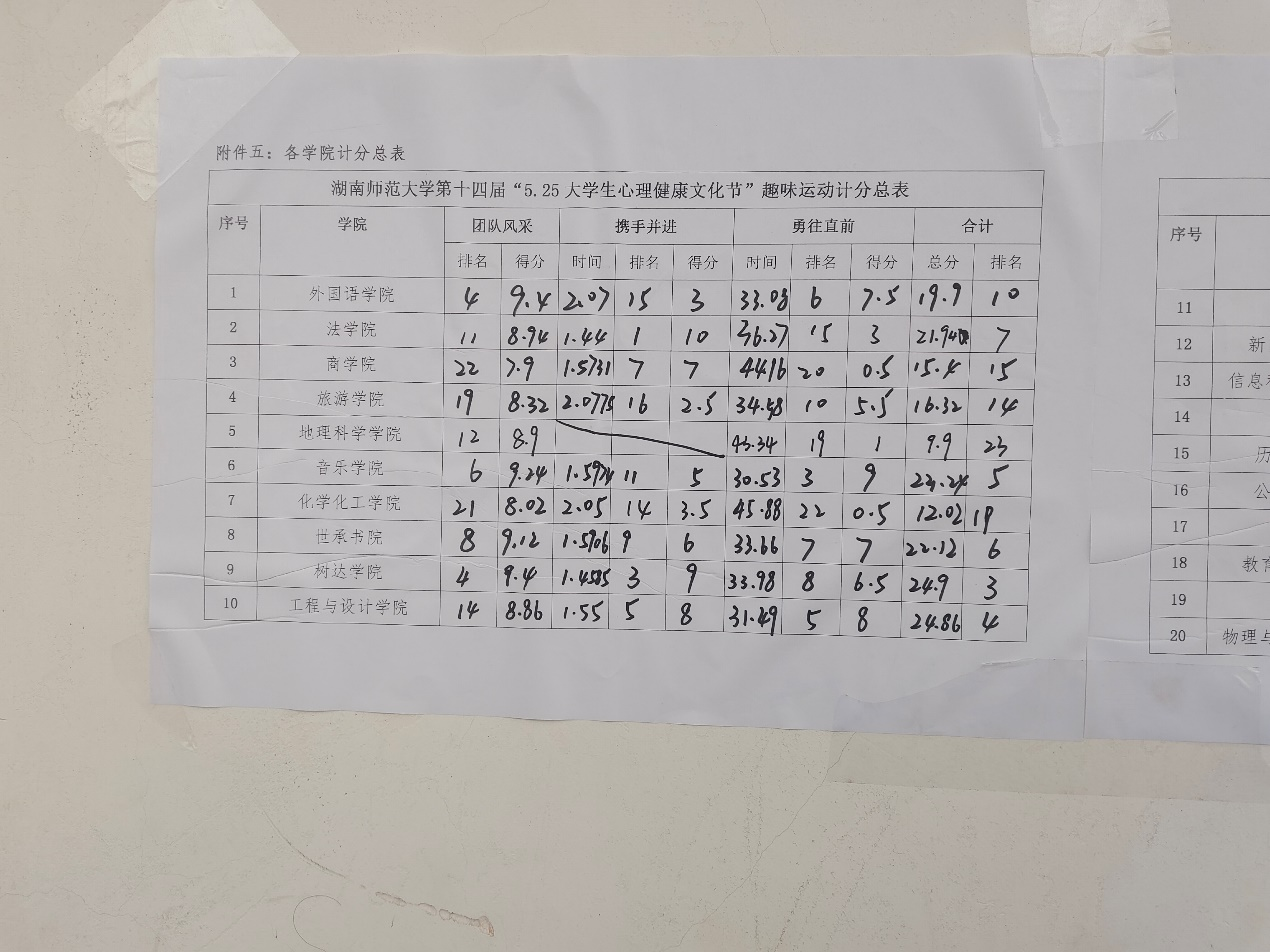 附件五：各学院计分总表
湖南师范大学第十四届“5.25大学生心理健康文化节”趣味运动计分总表
序号 学院 团队风采 携手并进 勇往直前 合计
排名 得分 时间 排名 得分 时间 排名 得分 总分 排名
1 外国语学院 4 9.4 2.07 15 3 33.08 6 7.5 19.9 10
2 法学院 11 8.94 1.44 1 10 36.27 15 3 21.94 7
3 商学院 22 7.9 1.5731 7 7 4416 20 0.5 15.4 15
4 旅游学院 19 8.32 2.0775 16 2.5 34.48 10 5.5 16.32 14
5 地理科学学院 12 8.9 43.34 19 1 9.9 23
6 音乐学院 6 9.24 11 5 30.53 3 9 23.24 5
7 化学化工学院 21 8.02 2.05 14 3.5 45.88 22 0.5 12.02 19
8 世承书院 8 9.12 1.5906 9 6 33.66 7 7 22.12 6
9 树达学院 4 9.4 1.4585 3 9 33.98 8 6.5 24.9 3
10 工程与设计学院 14 8.86 1.55 5 8 31.49 5 8 24.86 4
序号
11
12 新
13 信息
14
15 历
16 公
17
18 教育
19
20 物理与